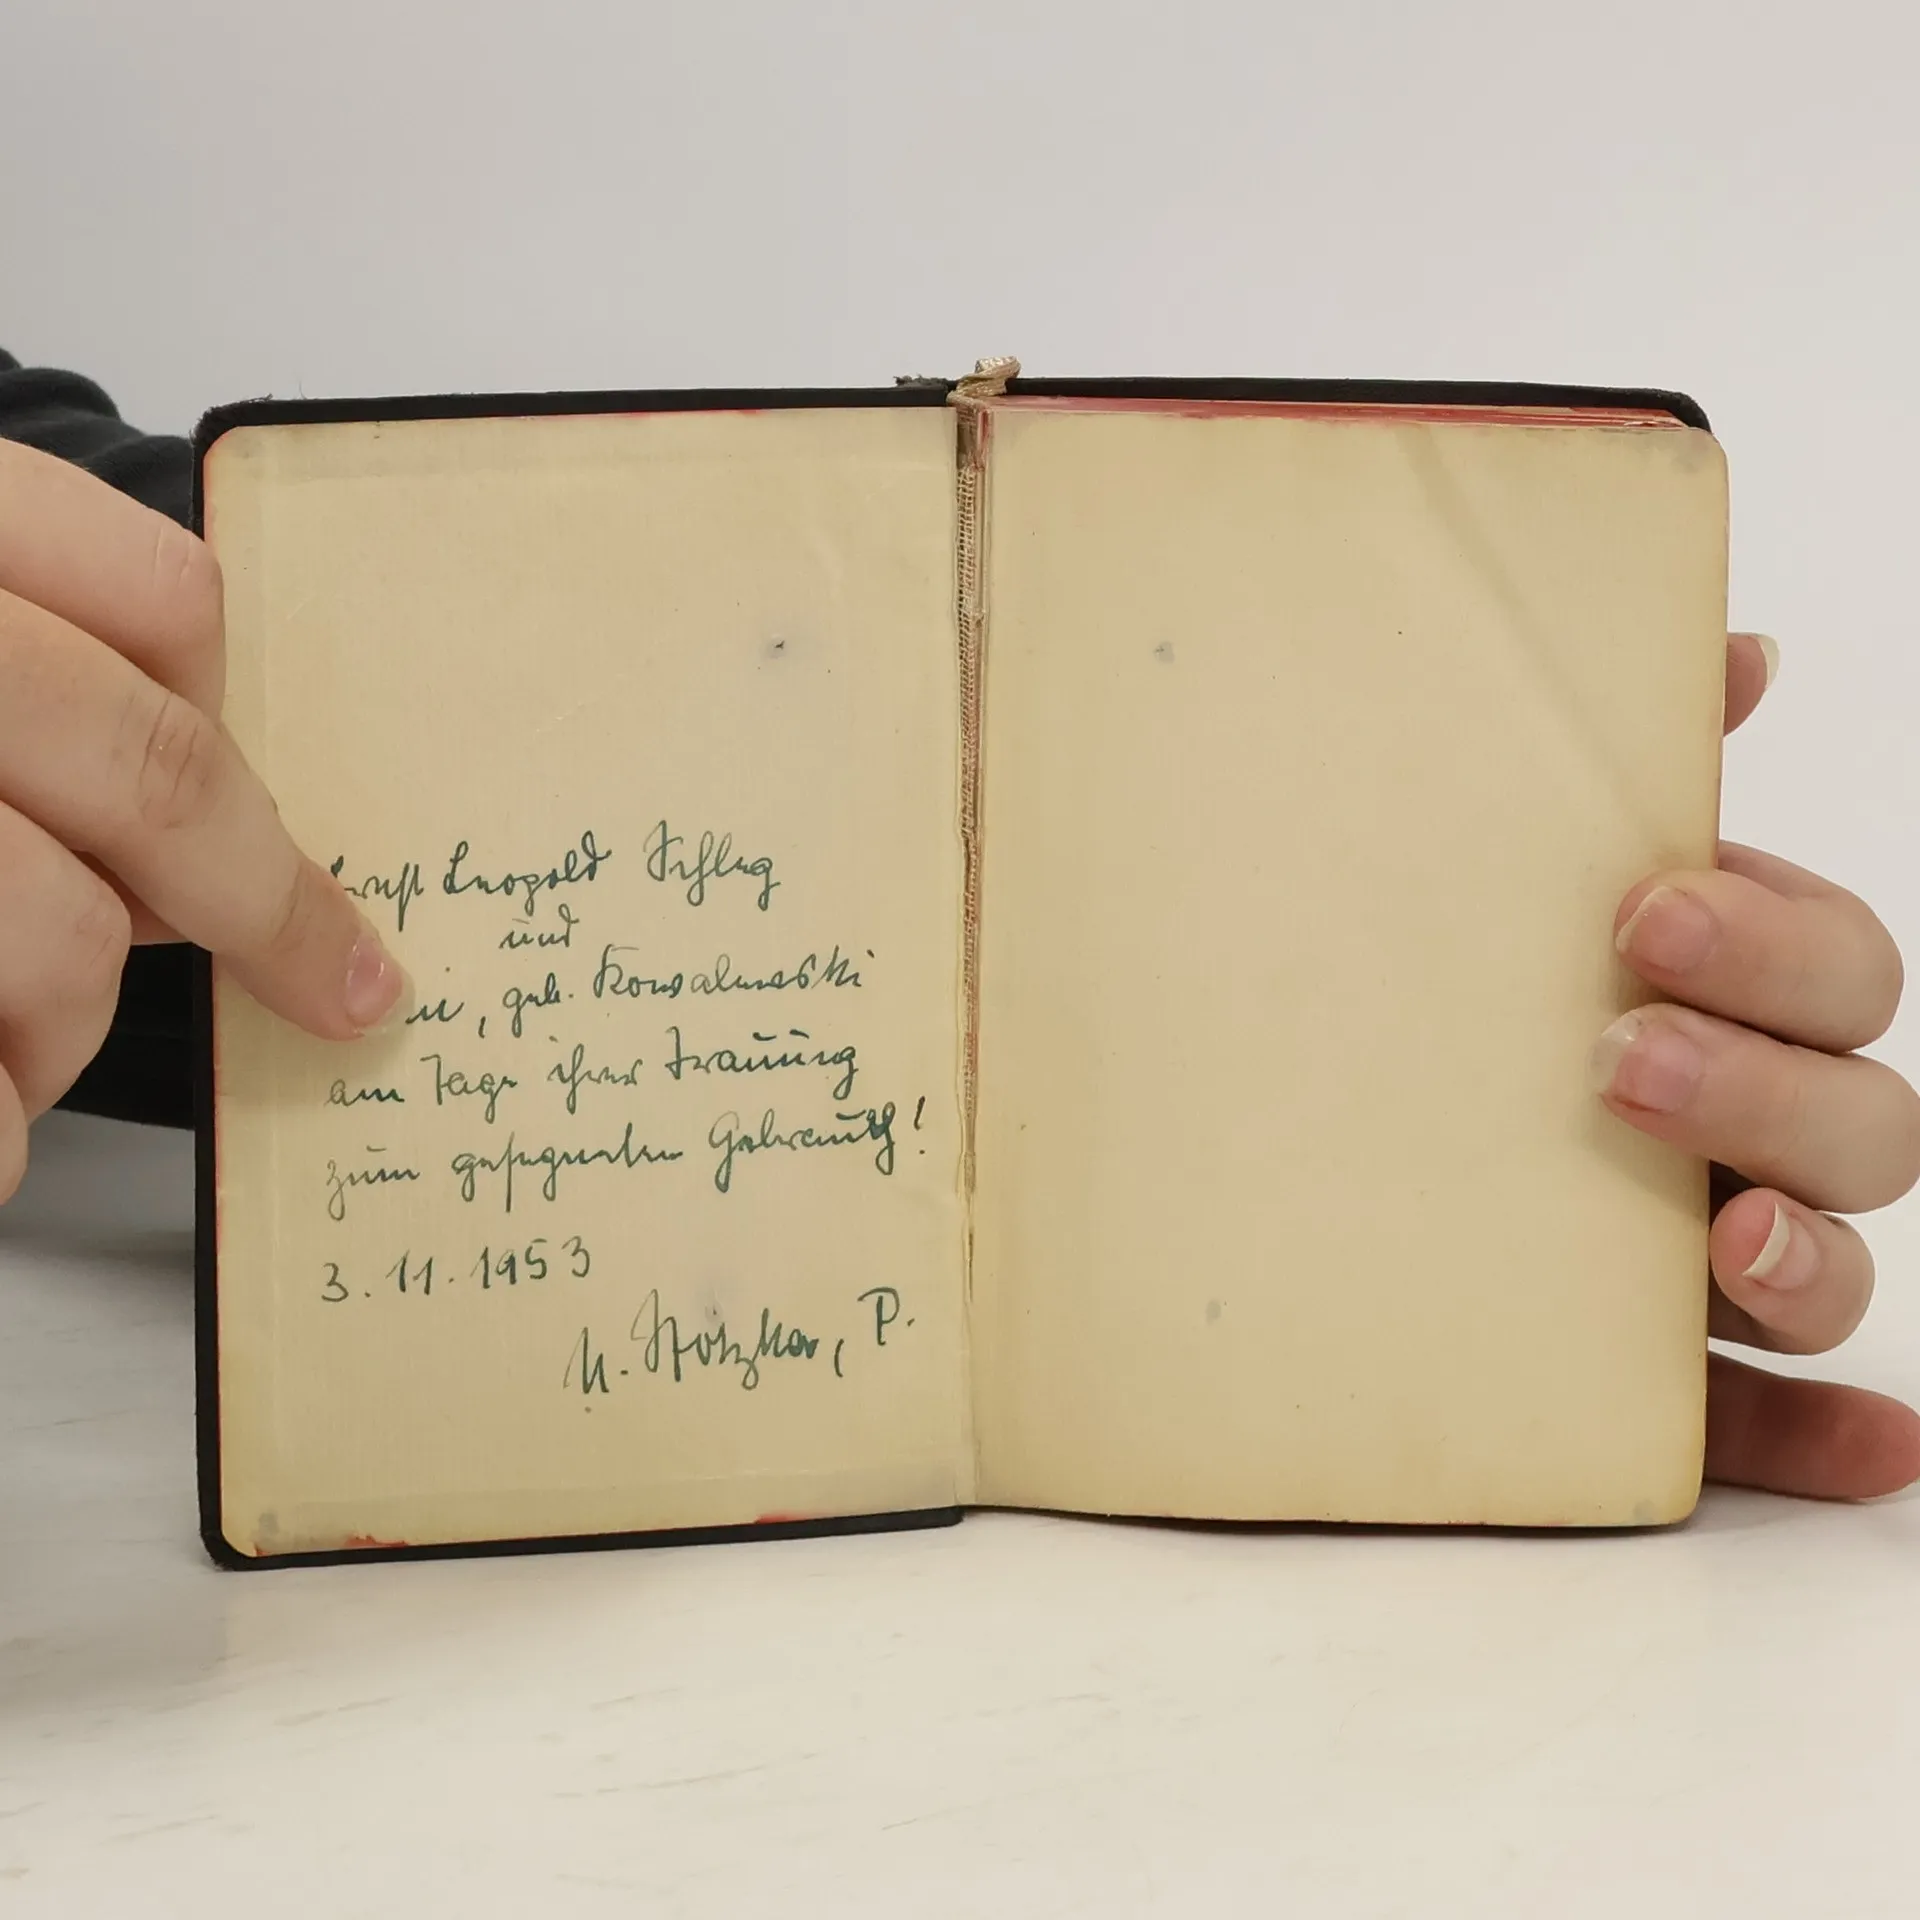 Ernst Leopold Schleg
und
geb. Kowalewski
am Tage ihrer Trauung
zum gesegneten Gebrauch!
3.11.1953
P.